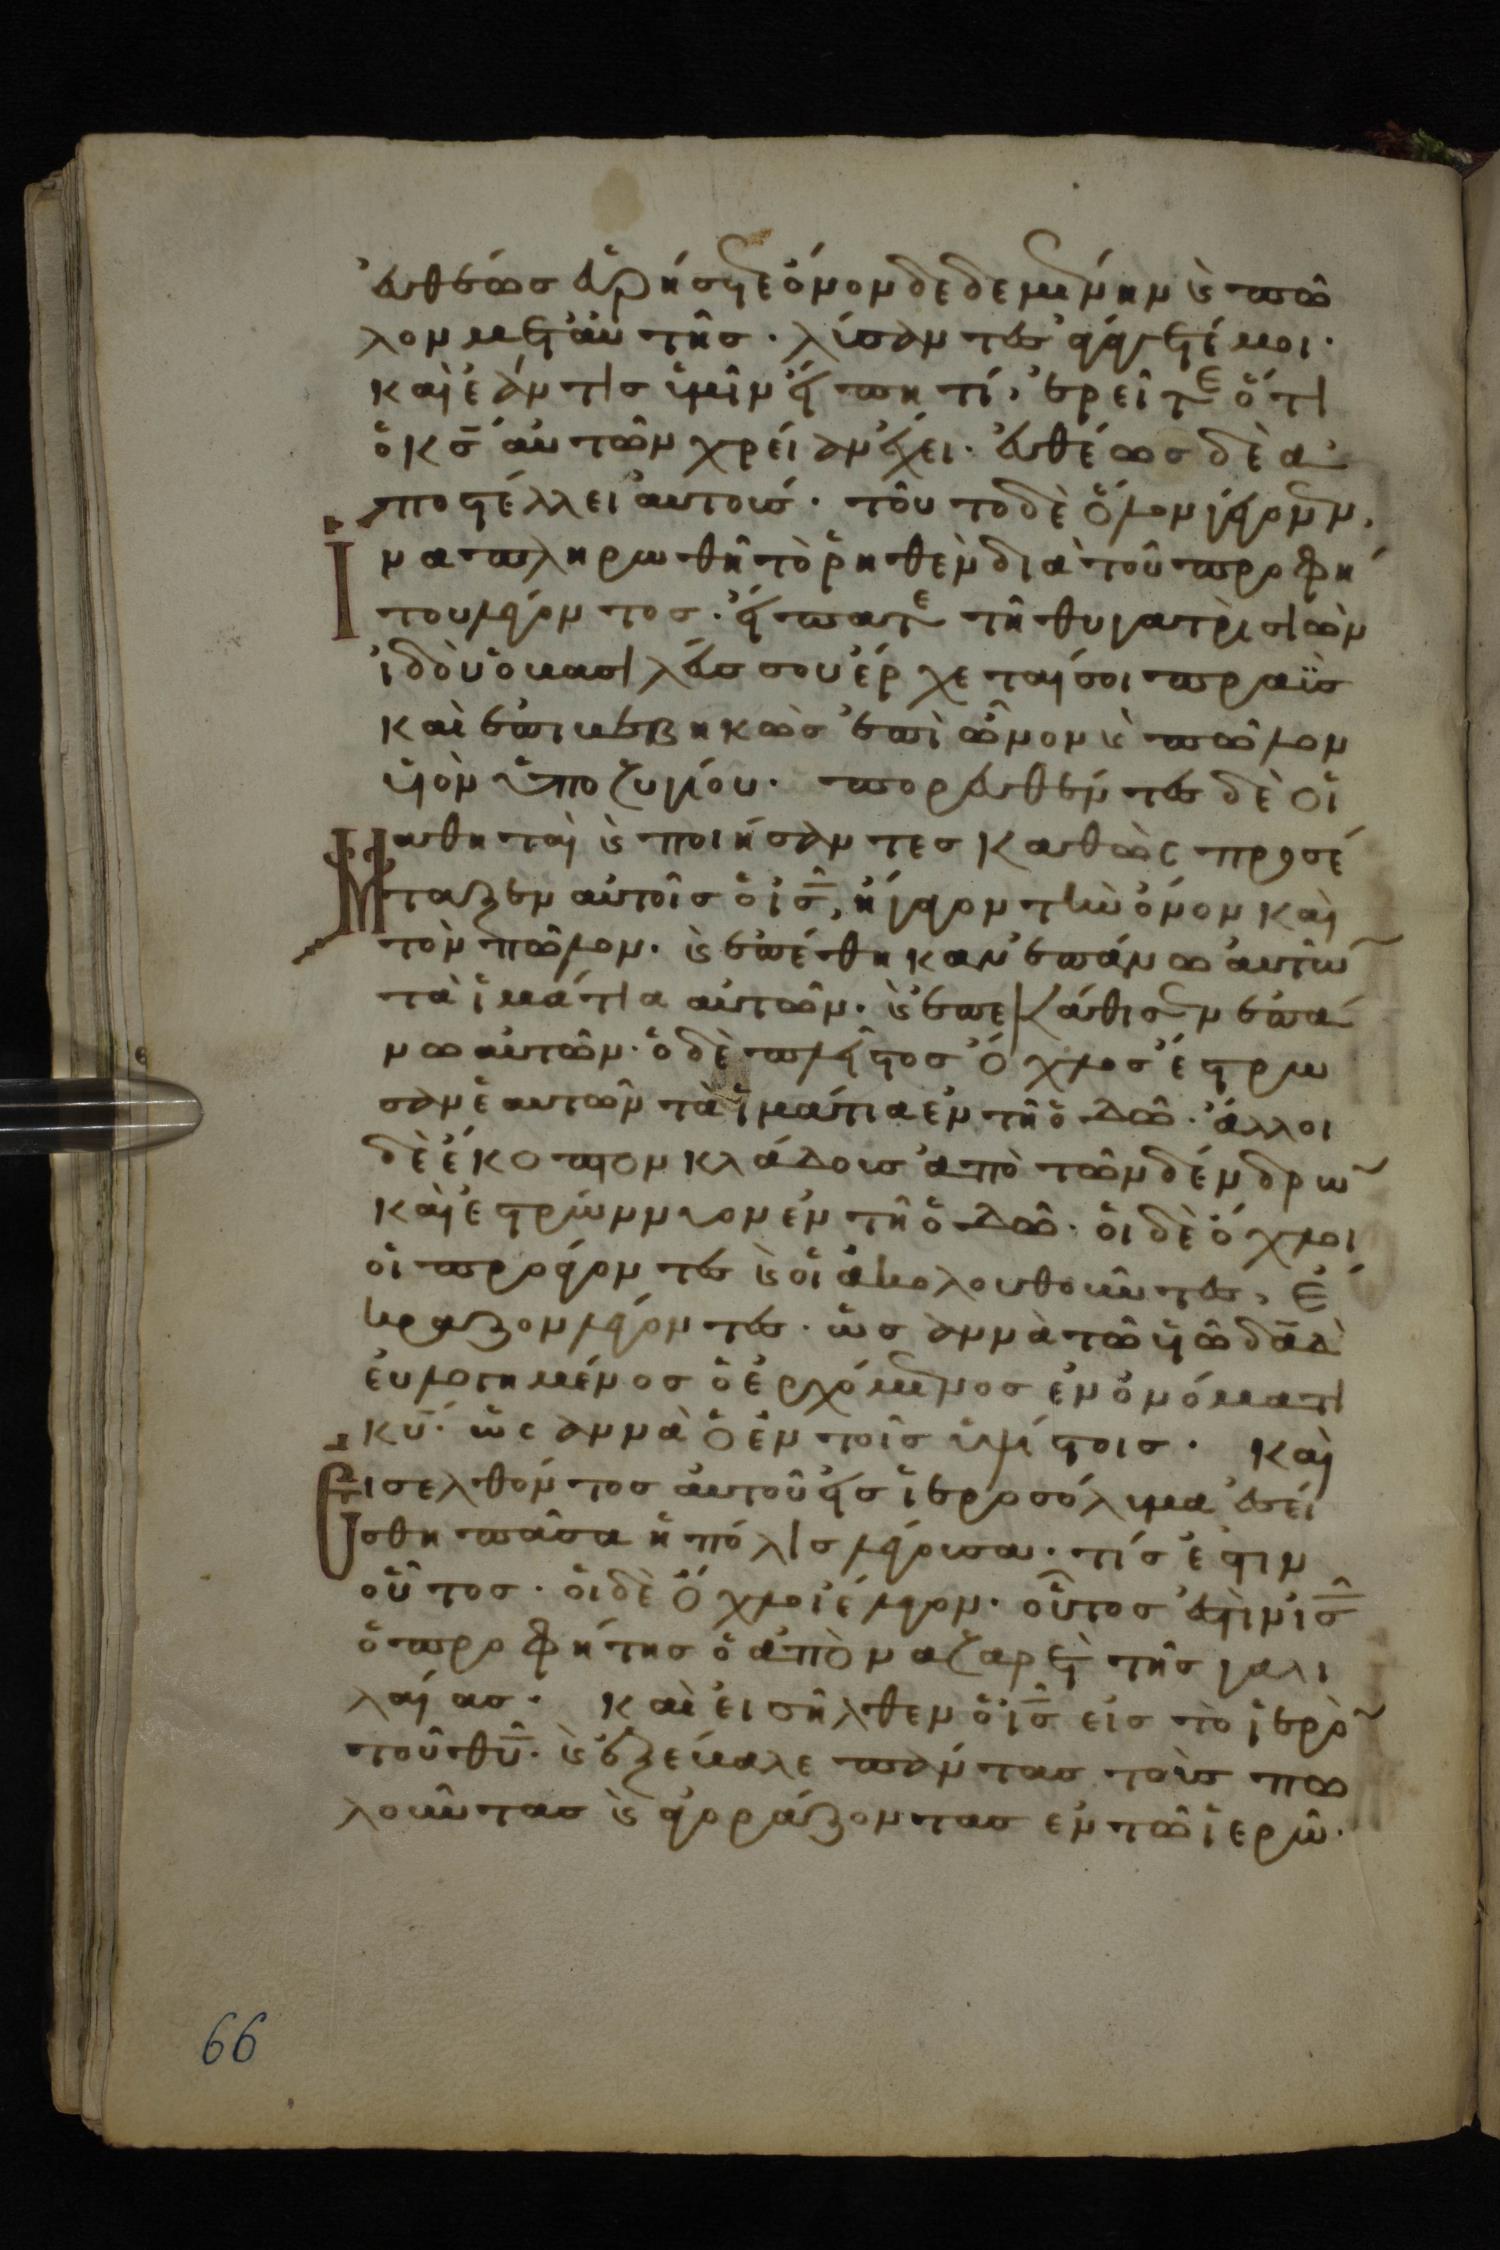 ευθέως εὑρήσετε ὄνον δεδεμένην ϗ πῶ
λον μετ' αὐτῆς· λύσαντες ἀγάγετέ μοι·
καὶ ἐάν τις ὑμῖν εἴπῃ τί, ἐρεῖτε ὅτι
ὁ κς̄ αὐτῶν χρείαν ἔχει· εὐθέως δὲ ἀ
ποστέλλει αὐτούς· τοῦτο δὲ ὅλον γέγονεν,
ἵνα πληρωθῆ τὸ ῥηθὲν διὰ τοῦ προφή
του λέγοντος· εἴπατε τῆ θυγατρὶ σιὼν
ἰδοὺ ὁ βασιλεύς σου ἔρχεταί σοι πραῢς
καὶ ἐπιβεβηκὼς ἐπὶ ὄνον ϗ πῶλον
υἱὸν ὑποζυγίου· πορευθέντες δὲ οἱ
Μαθηταὶ ϗ ποιήσαντες καθὼς προσέ
ταξεν αὐτοῖς ὁ ις̄, ἤγαγον τὴν ὄνον καὶ
τὸν πῶλον· ϗ ἐπέθηκαν ἐπάνω αὐτῶν
τὰ ἱμάτια αὐτῶν· ϗ ἐπεκάθισεν ἐπά
νω αὐτῶν· ὁ δὲ πλεῖστος ὄχλος ἔστρω
σαν ἑαυτῶν τὰ ἱμάτια ἐν τῆ ὁδῶ· ἄλλοι
δὲ ἔκοπτον κλάδους ἀπὸ τῶν δένδρων
καὶ ἐστρώννυον ἐν τῆ ὁδῶ· οἱ δὲ ὄχλοι
οἱ προάγοντες ϗ οἱ ἀκολουθοῦντες, ἔ
κραζον λέγοντες· ὡς ἀννὰ τῶ υἱῶ δᾱδ
εὐλογημένος ὁ ἐρχόμενος ἐν ὀνόματι
κῡ· ὡς ἀννὰ ὁ ἐν τοῖς ὑψίστοις· καὶ
Εἰσελθόντος αὐτοῦ εἰς ἱεροσόλυμα ἐσεί
σθη πᾶσα ἡ πόλις λέγουσα· τίς ἐστιν
οὗτος· οἱ δὲ ὄχλοι ἔλεγον· οὗτός ἐστιν ις̄
ὁ προφήτης ὁ ἀπὸ ναζαρὲτ τῆς γαλι
λαίας· καὶ εἰσῆλθεν ὁ ις̄ εἰς τὸ ἱερὸν
τοῦ θῡ· ϗ ἐξέβαλε πάντας τοὺς πω
λοῦντας ϗ ἀγοράζοντας ἐν τῶ ἱερῶ·
66